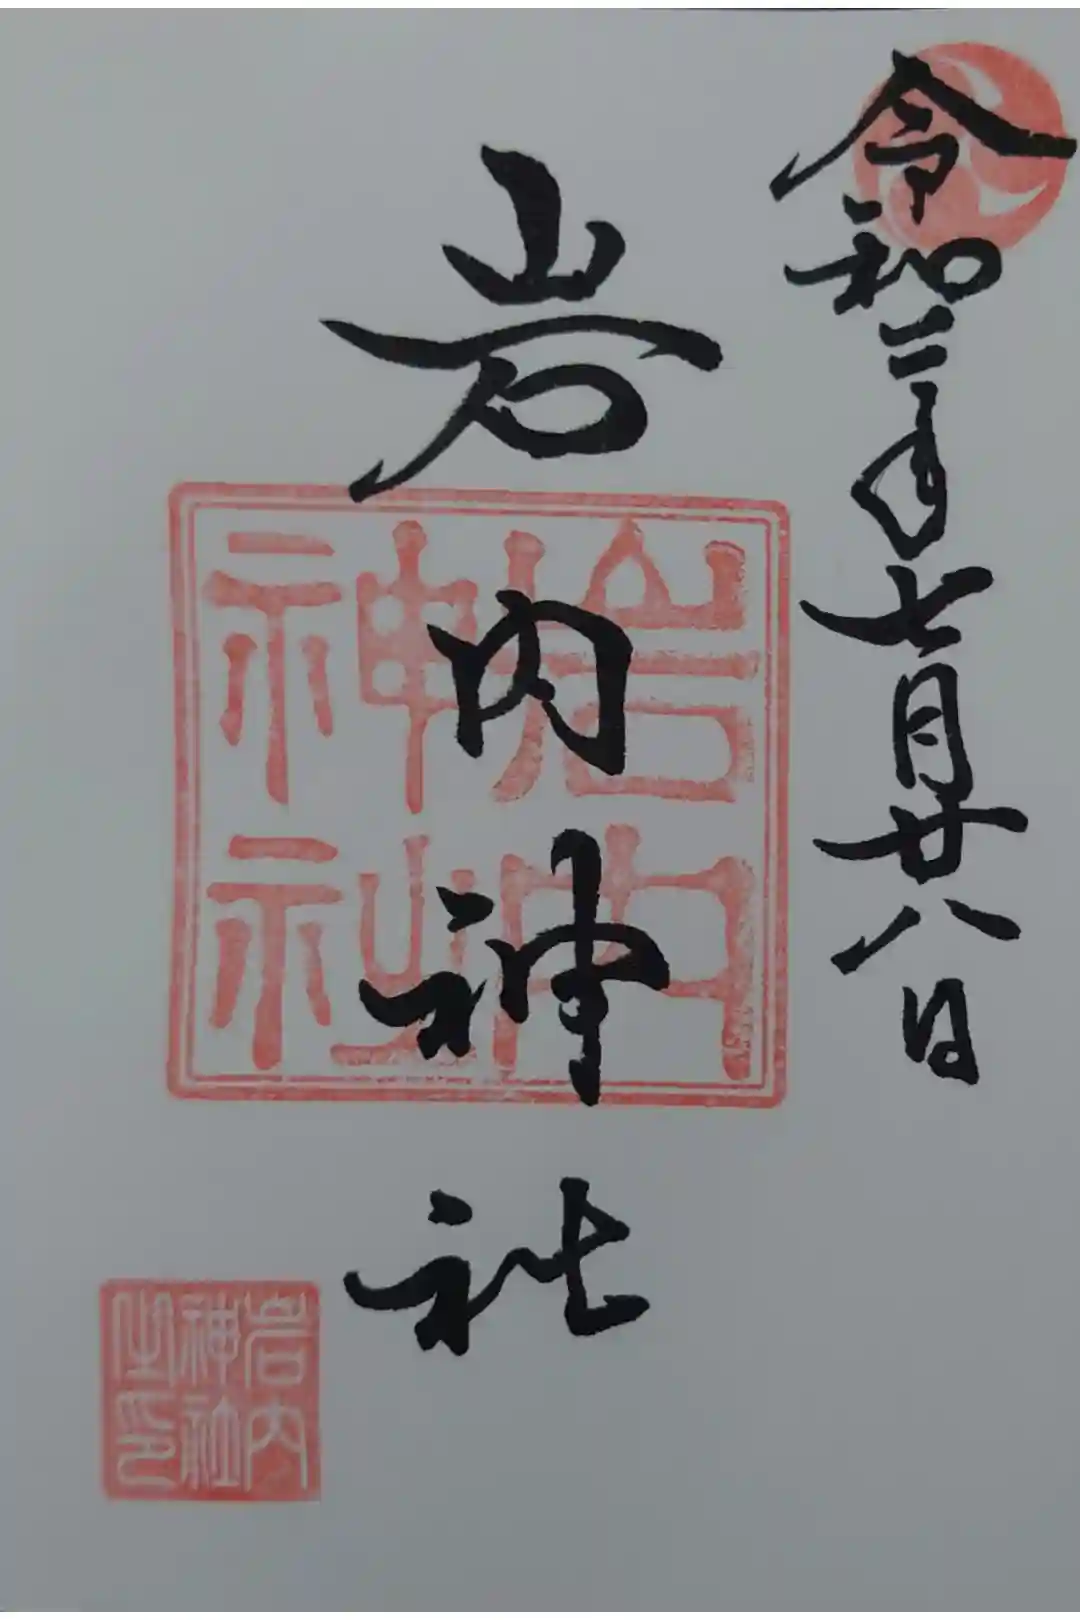 令和三年七月廿八日
岩内神社
岩内
神社
岩内
神社
之印